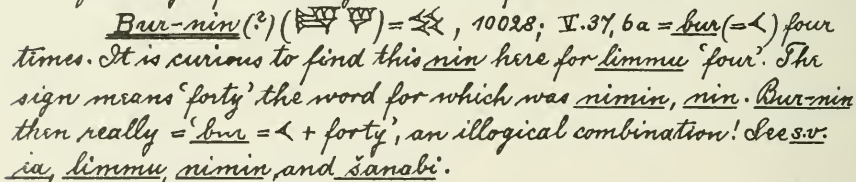 Bur-nin(?)( )= , 10028; V.37, 6a = bur(=𒌋) four
times. It is curious to find this nin here for limmu 'four'. The
sign means 'forty' the word for which was nimin, nin. Bur-nin
then really = 'bur = 𒌋 + forty', an illogical combination! See s.v.
ia, limmu, nimin, and šanabi.